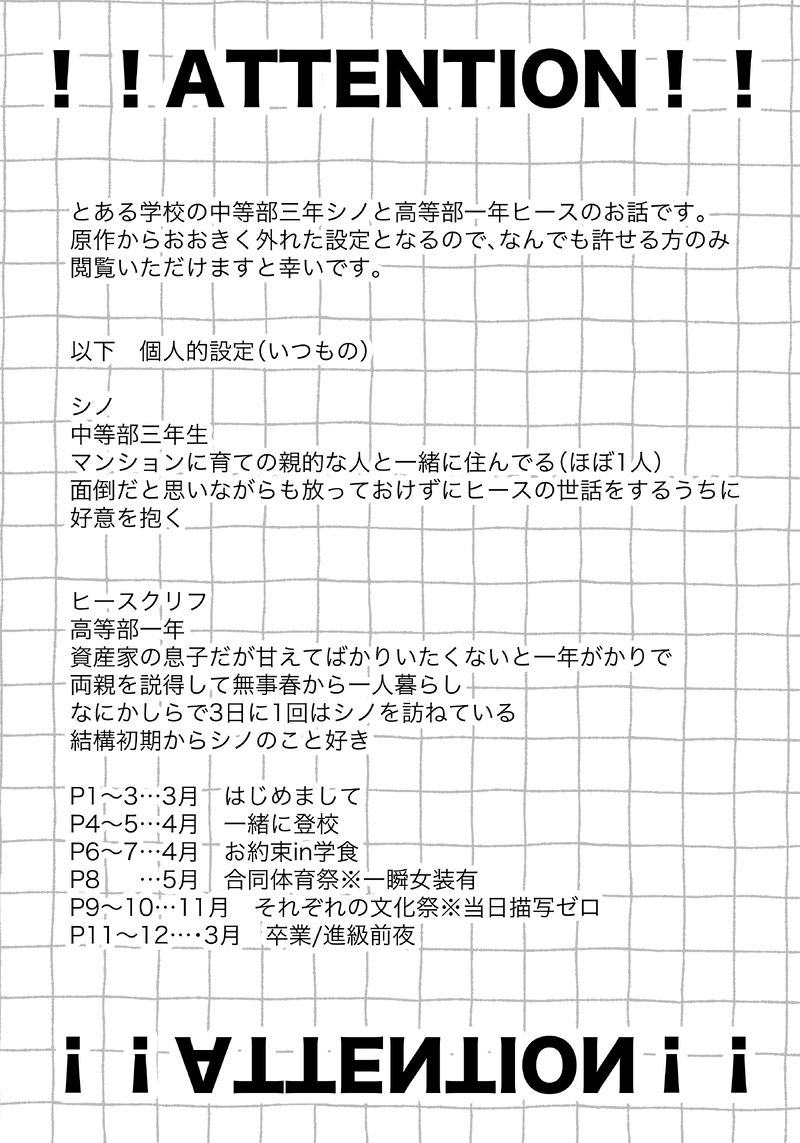 ！！ATTENTION！！
とある学校の中等部三年シノと高等部一年ヒースのお話です。
原作からおおきく外れた設定となるので、なんでも許せる方のみ
閲覧いただけますと幸いです。
以下　個人的設定（いつもの）
シノ
中等部三年生
マンションに育ての親的な人と一緒に住んでる（ほぼ1人）
面倒だと思いながらも放っておけずにヒースの世話をするうちに
好意を抱く
ヒースクリフ
高等部一年
資産家の息子だが甘えてばかりいたくないと一年がかりで
両親を説得して無事春から一人暮らし
なにかしらで3日に1回はシノを訪ねている
結構初期からシノのこと好き
P1〜3…3月　はじめまして
P4〜5…4月　一緒に登校
P6〜7…4月　お約束in学食
P8　　…5月　合同体育祭※一瞬女装有
P9〜10…11月　それぞれの文化祭※当日描写ゼロ
P11〜12…・3月　卒業/進級前夜
！！ATTENTION！！